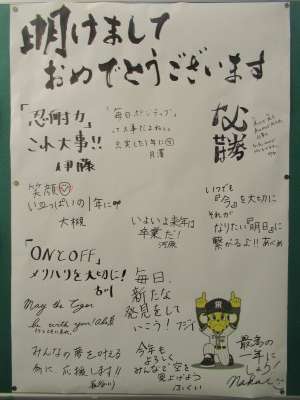 明けまして
おめでとうございます
「忍耐力」
これ大事!!
伊藤
毎日ポジティブ
って大事だよね。
充実した1年に
必勝
笑顔
いっぱいの1年に
大槻
いよいよ来年は
卒業だ!
いつでも
『今』を大切に
それが
なりたい『明日』に
繋がるよ!!
「ONとOFF」
メリハリを大切に!
毎日、
新たな
発見をして
いこう!
May the Tiger
be with you!
みんなの夢を叶える
為に、応援します!!
今年も
よろしく
みんなで空を
見上げよう
最高の
一年に
しよう!